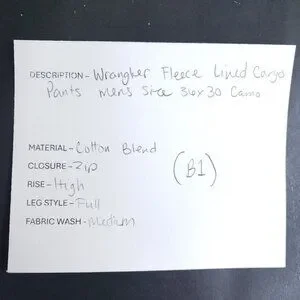 DESCRIPTION - Wrangler Fleece Lined Cargo
Pants mens Size 36x30 Camo
MATERIAL - Cotton Blend
CLOSURE - Zip
(B1)
RISE - High
LEG STYLE - Full
FABRIC WASH - Medium